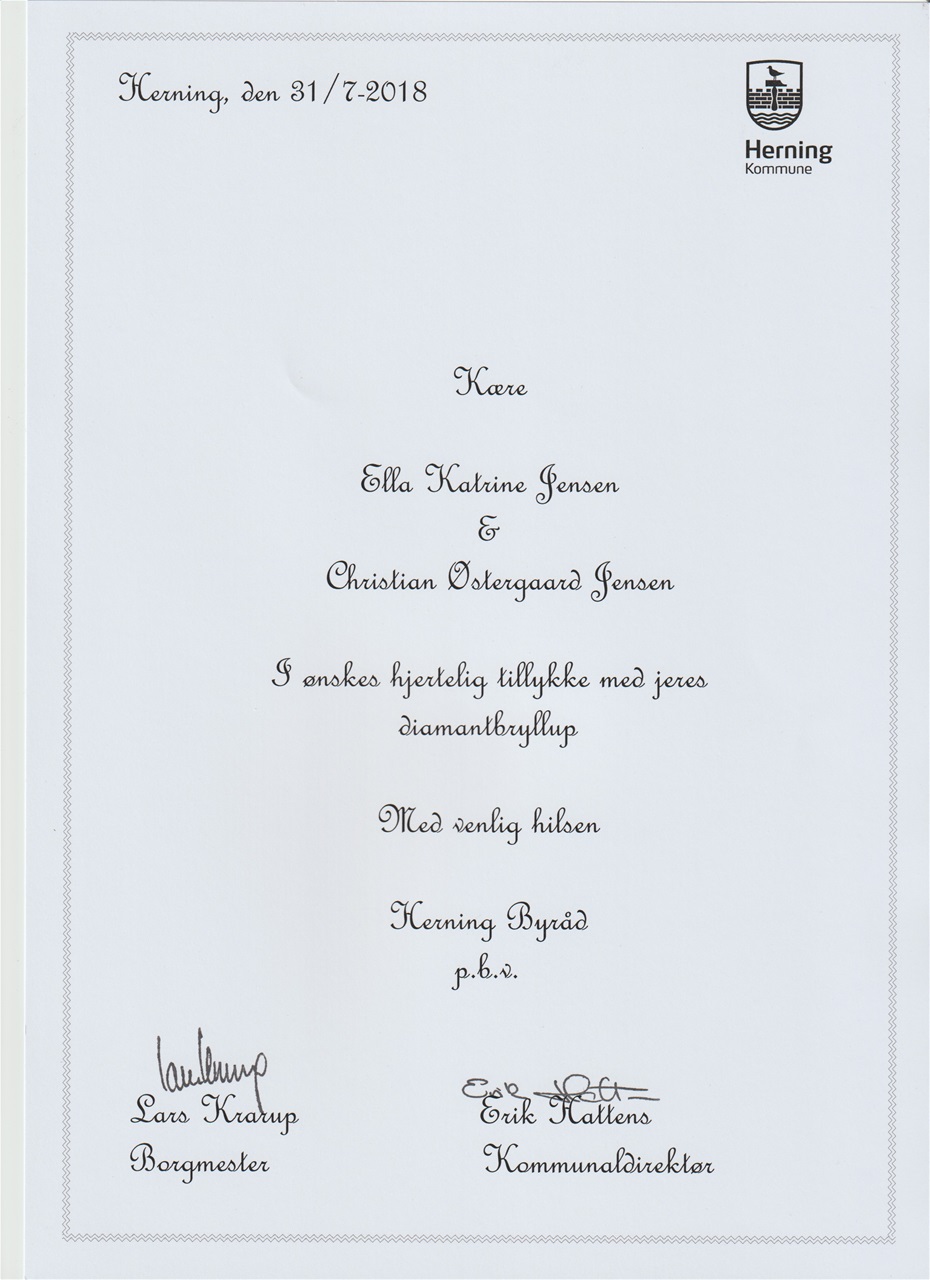 Herning, den 31/7-2018
Herning
Kommune
Kære
Ella Katrine Jensen
&
Christian Østergaard Jensen
I ønskes hjertelig tillykke med jeres
diamantbryllup
Med venlig hilsen
Herning Byråd
p.b.v.
Lars Krarup
Erik Hattens
Lars Krarup
Erik Hattens
Borgmester
Kommunaldirektør